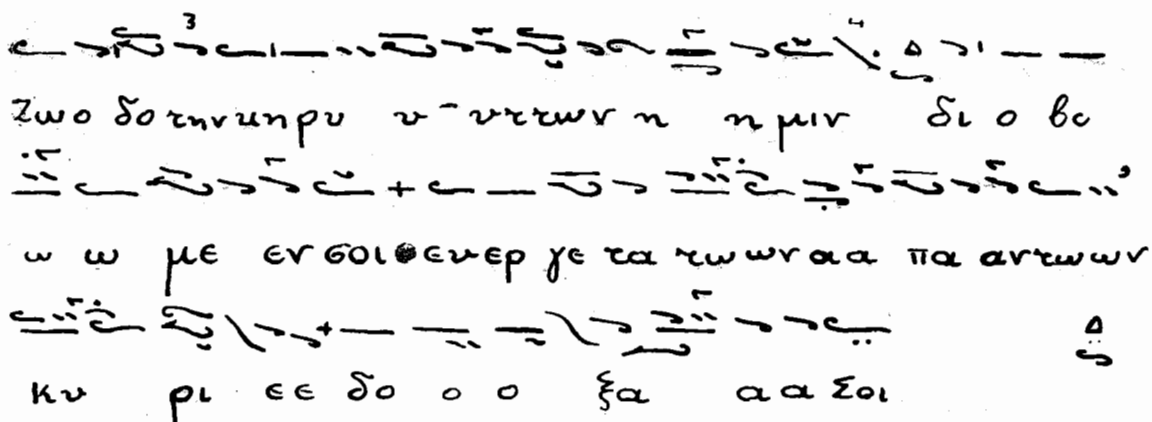 Ζωο δο την κη ρυ υ υτ των η η μιν δι ο βο
ω ω με εν σοι ευ ερ γε τα τω ων α α πα αν τω ων
κυ ρι ε ε δο ο ο ξα α α Σοι